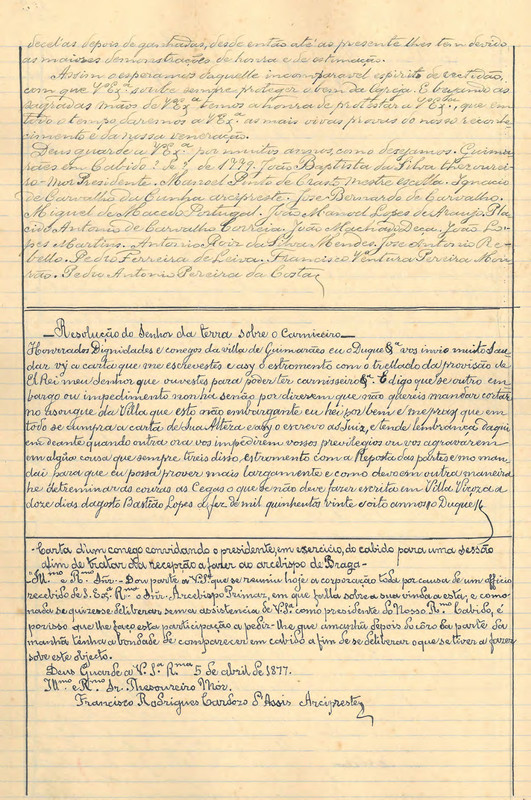 decel'as depois de ganhadas, desde então até ao presente lhes tem devido
as maiores demonstrações de honra e de estimação.
Assim esperamos daquelle incomparavel espirito de rectidão,
com que V.ª Ex.ª sobre sempre proteger o bem da Egreja. E beijando as
sagradas mãos de V.ª Ex.ª temos a honra de protestar a V.ª Ex.ª, que em
todo o tempo daremos a V. Ex.ª as mais vivas provas do nosso reconhe-
cimento e da nossa veneração.
Deus guarde a V. Ex.ª por muitos annos, como desejamos. Guima-
rães em Cabido de 1799. João Baptista da Silva thezourei-
ro-Mor Presidente. Manoel Pinto de Crasto, mestre escolla. Ignacio
de Carvalho da Cunha arcipreste. José Bernardo de Carvalho.
Miguel de Macedo Portugal. João Manoel Lopes de Araujo. Pla-
cido Antonio de Carvalho Correia. João Machado Deça. João Lo-
pes Martins. Antonio Roiz da Silva Mendes. José Antonio Re-
bello. Pedro Ferreira de Leiva. Francisco Ventura Pereira Mou-
rão. Pedro Antonio Pereira da Costa
—Resolução do Senhor da terra sobre o Carniceiro—
Honorados Dignidades e conegos da villa de Guimarães eu o Duque vos invio muito sau
dar vy a carta que me escrevestes e asy o estromento com o trellado da provisão de
El Rei meu Senhor que ouvestes para poder ter carnisseiro E digo que se outro em-
bargo ou impedimento non ha senão por diserem que não quereis mandar cortar
no asougue da Villa que esto não embargante eu hei por bem e me praz que em
todo se cumpra a carta de Sua Alteza e asy o escrevo ao Juiz, e tende lembrança daqui
em deante quando outra ora vos impedirem vossos previlegios ou vos agravarem
em algũa cousa que sempre tireis disso estromento com a Reposta das partes e mo man-
dai para que eu possa prover mais largamente e como devo em outra maneira
he detreminar as cousas as Cegas o que se não deve fazer escrita em Villa Viçoza a
doze dias dagosto Bastião Lopes a fez de mil quinhentos vinte e oito annos o Duque
-Carta d'um conego convidando o presidente, em exercicio, do cabido para uma sessão
afim de tratar da recepção a fazer ao arcebispo de Braga-
"Ill.mo e R.mo Snr.- Dou parte a V. S.ª que se reuniu hoje a corporação toda por causa de um officio
recebido de S. Ex.ª R.ma o Snr. Arcebispo Primaz, em que falla sobre a sua vinda a esta, e como
nada se quizesse deliberar sem a assistencia de V. S.ª como presidente do Nosso R.mo Cabido, é
por isso que lhe faço esta participação a pedir-lhe que amanhã depois do côro da parte da
manhã tenha a bondade de comparecer em cabido a fim de se deliberar o que se tiver a fazer
sobre este objecto.
Deus Guarde a V. S.ª R.ma 5 de abril de 1877.
Ill.mo e R.mo Sr. Thesoureiro Mór.
Francisco Rodrigues Cardozo d'Assis Arcipreste